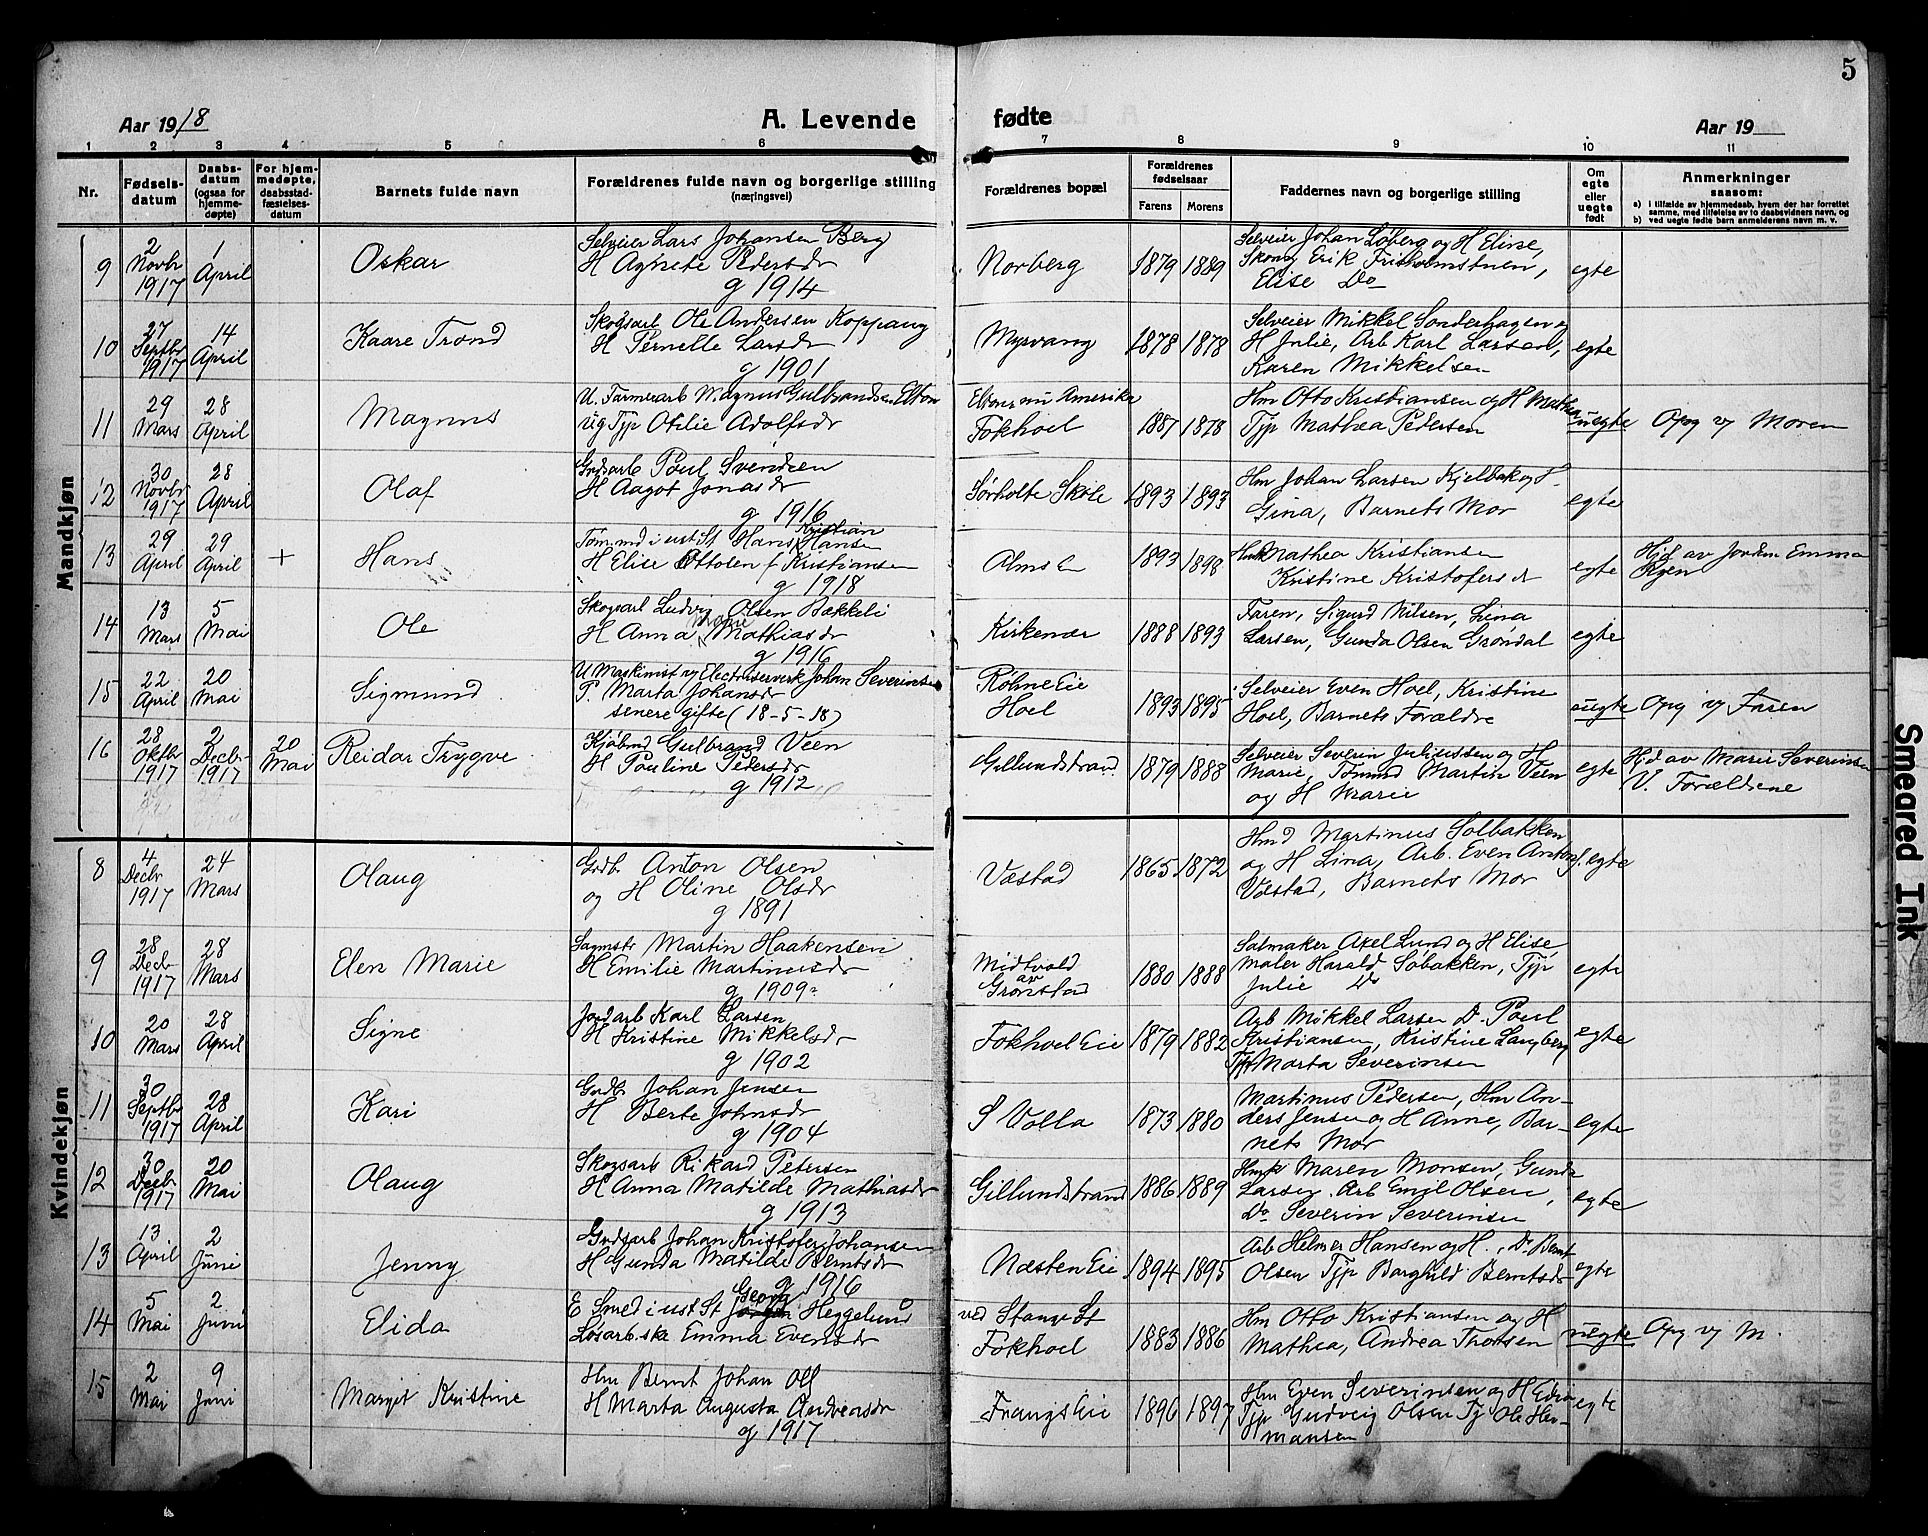 5
Aar 1918
A. Levende
fødte
Aar 19
1 2 3 4 5 6 7 8 9 10 11
Nr.
Fødsels-
datum
Daabs-
datum
(ogsaa for
hjemme-
døpte)
For hjem-
medøpte,
daabsstad-
fæstelses-
datum
Barnets fulde navn
Forældrenes fulde navn og borgerlige stilling
(næringsvei)
Forældrenes bopæl
Forældrenes
fødselsaar
Farens Morens
Faddernes navn og borgerlige stilling
Om
egte
eller
uegte
født
Anmerkninger
saasom:
a) i tilfælde av hjemmedaab, hvem der har forrettet
samme, med tilføielse av to daabsvidners navn, og
b) ved uegte fødte barn anmelderens navn m. v.
Mandkjøn
9
2
Novbr
1917
1
April
Oskar
Selveier Lars Johansen Berg
H Agnete Pedersdr
g 1914
Norberg
1879 1889
Selveier Johan Løberg og H Eline,
Skom Erik Frisholmstuen,
Elise Do
egte
10
27
Septbr
1917
14
April
Kaare Trond
Skogsarb Ole Andersen Koppang
H Pernelle Larsdr
g 1901
Myrvang
1878 1878
Selveier Mikkel Sønderhagen og
H Julie, Arb Karl Larsen,
Karen Mikkelsen
egte
11
29
Mars
28
April
Magnus
U. Farmerarb Magnus Gulbrandsen Elton
Ug Tjp Otilie Adolfsdr
Elton nu Amerika
Fokhoel
1887 1878
Hm Otto Kristiansen og H Mathea
Tjp Mathea Pedersen
uegte
Opg v Moren
12
30
Novbr
1917
28
April
Olaf
Grdsarb Poul Svendsen
H Aagot Jonasdr
g 1916
Sørholte Skole
1893 1893
Hm Johan Larsen Kjelbak og H
Gina, Barnets Mor
egte
13
29
April
29
April
+
Hans
Tømmd i ustift Hans Kristian Hansen
H Elise Ottolen f Kristiansen
g 1918
Alms
1893 1898
Mathea Kristiansen
Kristine Kristofersdr
egte
Hjd av Jordm Emma
Ryen
14
13
Mars
5
Mai
Ole
Skogsarb Ludvig Olsen Bækkeli
H Anna Marie Mathiasdr
g 1916
Kirkenær
1888 1893
Faren, Sigurd Nilsen, Lina
Larsen, Gunda Olsen Grøndal
egte
15
22
April
20
Mai
Sigmund
U Maskinist v Electricerverk Johan Severinsen
P. Marta Johansdr
senere gifte (18-5-18)
Røhne Eie
Hoel
1893 1895
Selveier Even Hoel, Kristine
Hoel, Barnets Forældre
uegte
Opg v Faren
16
28
Oktbr
1917
2
Decbr
1917
20
Mai
Reidar Trygve
Kjøbmd Gulbrand Veen
H Pouline Pedersdr
g 1912
Gillundstrand
1879 1888
Selveier Severin Juliussen og H
Marie, Tømmd Martin Veen
og H Marie
egte
Hjd av Marie Severinsen
V. Forældrene
Kvindekjøn
8
4
Decbr
1917
24
Mars
Olaug
Grdbr Anton Olsen
og H Oline Olsdr
g 1891
Væstad
1865 1872
Hmd Martinus Solbakken
og H Lina, Arb. Even Antons.
Væstad, Barnets Mor
egte
9
28
Decbr
1917
28
Mars
Elen Marie
Sagmstr Martin Haakensen
H Emilie Martinusdr
g 1909
Midtvold
av
Grønstad
1880 1888
Salmaker Axel Lund og H Elise
Maler Harald Søbakken, Tjp
Julie Do
egte
10
20
Mars
28
April
Signe
Jordarb Karl Larsen
H Kristine Mikkelsdr
g 1902
Fokhoel Eie
1879 1882
Arb Mikkel Larsen Do Poul
Kristiansen, Kristine Langberg
Tjp Marta Severinsen
egte
11
30
Septbr
1917
28
April
Kari
Grdbr Johan Jensen
H Berte Johnsdr
g 1904
S Volla
1873 1880
Martinus Pedersen, Hm An-
ders Jensen og H Anne, Bar-
nets Mor
egte
12
30
Decbr
1917
20
Mai
Olaug
Skogsarb Rikard Petersen
H Anna Matilde Mathiasdr
g 1913
Gillundstrand
1886 1889
Maren Monsen, Gunda
Larsen, Arb Emil Olsen,
Do Severin Severinsen
egte
13
13
April
2
Juni
Jenny
Grdsarb Johan Kristofer Johansen
H Gunda Matilde Berntsdr
g 1916
Næsten Eie
1894 1895
Arb Helmer Hansen og H., Do Bernt
Olsen Tjp Borghild Berntsdr
egte
14
5
Mai
2
Juni
Elida
E Smed i ust St Georg Heggelund
Løsarb.ske Emma Evensdr
ved Stange St
Fokhoel
1883 1886
Hm Otto Kristiansen og H
Mathea, Andrea Thorsen
uegte
Opg v M.
15
2
Mai
9
Juni
Margit Kristine
Hm Bernt Johan Olf
H Marta Augusta Andreasdr
g 1917
Frangs Eie
1896 1897
Hm Even Severinsen og H Edin
Tjp Gudveig Olsen Tj Ole Her-
mansen
egte
Smeared Ink